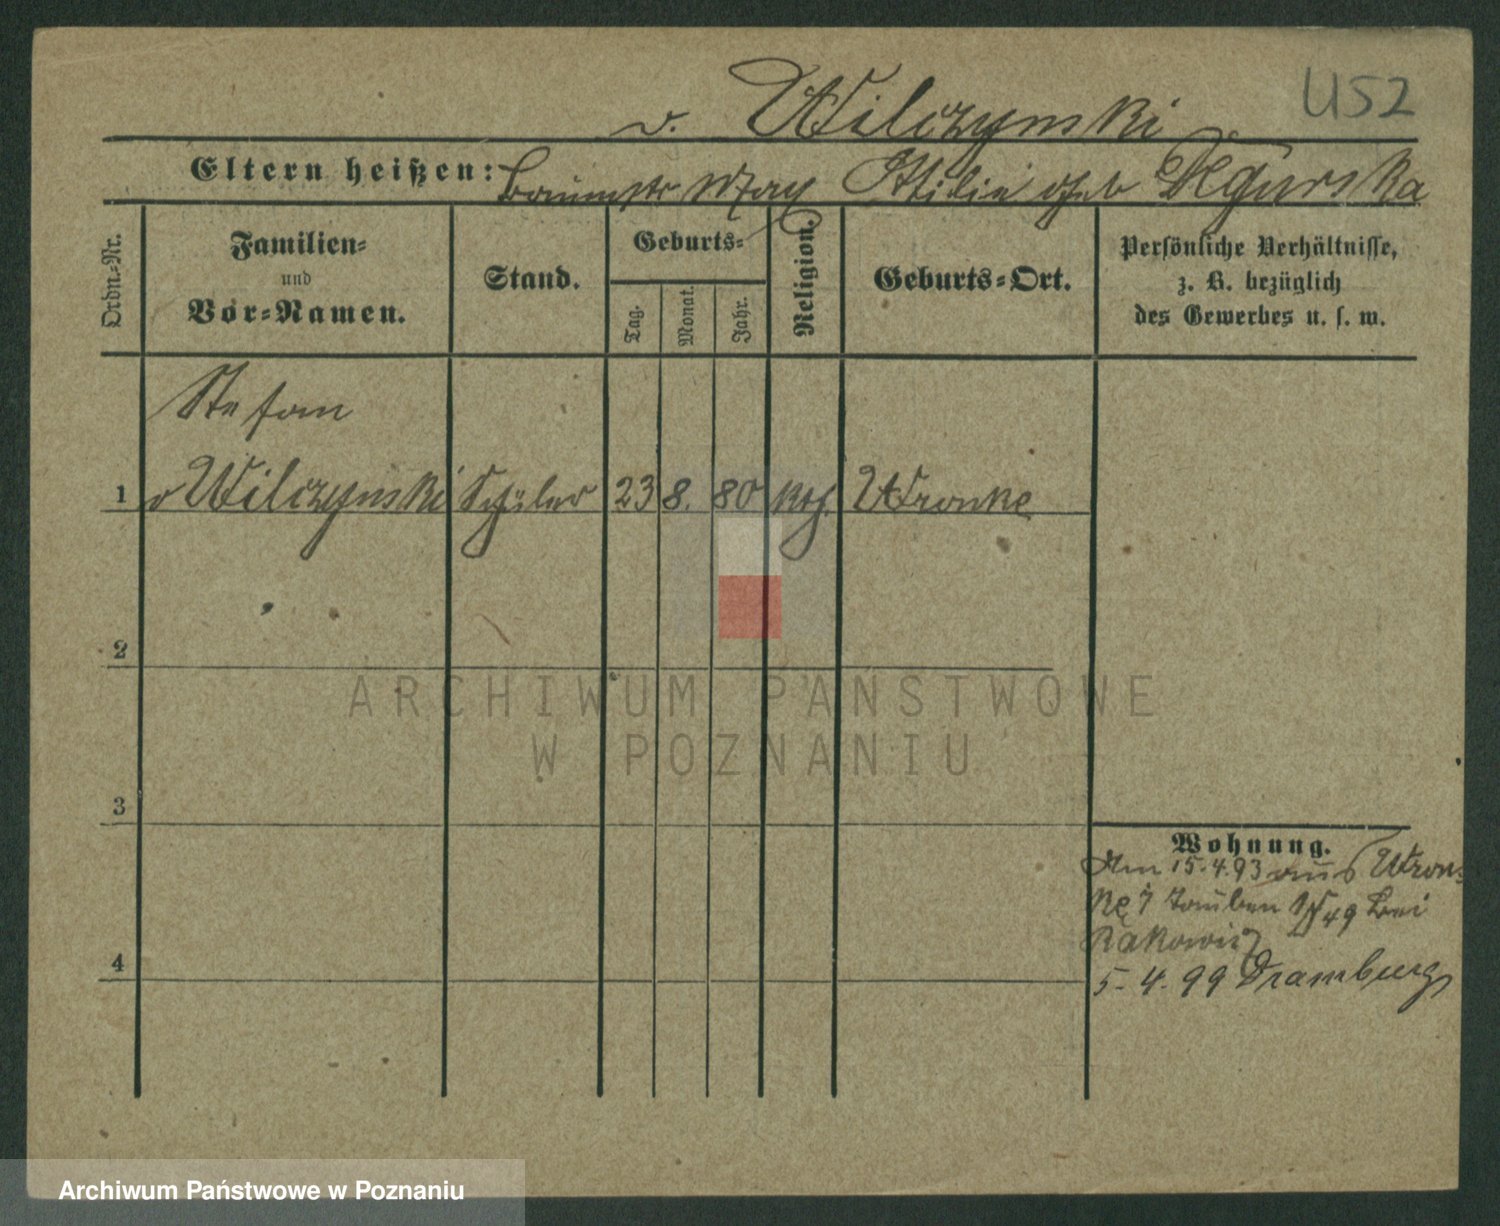 U52
v. Wilczynski
Eltern heißen: Baumstr Max Ottilie geb Degurska
Ordn=Nr.
Familien=
und
Vor=Namen.
Stand.
Geburts=
Tag.
Monat.
Jahr.
Religion.
Geburts=Ort.
Persönliche Verhältnisse,
z. B. bezüglich
des Gewerbes u. s. w.
Stefan
1 v Wilczynski Schüler 23 8. 80 kth. Wronke
2
3
4
Wohnung.
Am 15.4.93 aus Wron=
ke Tauben 49 bei
Rakowicz
5.4.99 Dramburg
ARCHIWUM PAŃSTWOWE
W POZNANIU
Archiwum Państwowe w Poznaniu